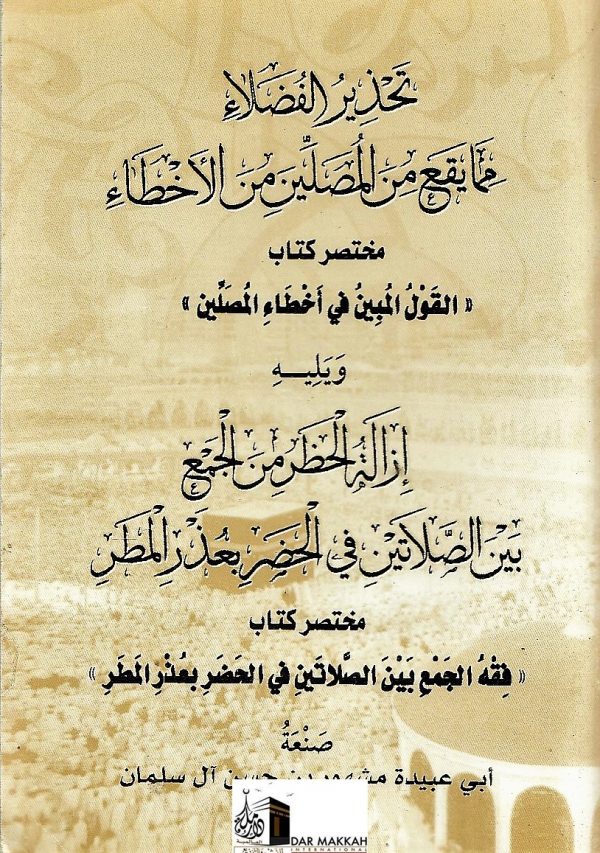 تَحْذِيرُ الفُضَلَاءِ
مِمَّا يَقَعُ مِنَ المُصَلِّينَ مِنَ الأَخْطَاءِ
مختصر كتاب
« القَوْلُ المُبِينُ في أَخْطَاءِ المُصَلِّين »
وَيَلِيـهِ
إِزَالَةُ الحَظَرِ مِنَ الجَمْعِ
بَيْنَ الصَّلَاتَيْنِ فِي الحَضَرِ بِعُذْرِ المَطَرِ
مختصر كتاب
« فِقْهُ الجَمْعِ بَيْنَ الصَّلَاتَينِ في الحَضَرِ بِعُذْرِ المَطَرِ »
صَنْعَةُ
أبي عبيدة مشهور بن حسن آل سلمان
DAR MAKKAH
INTERNATIONAL